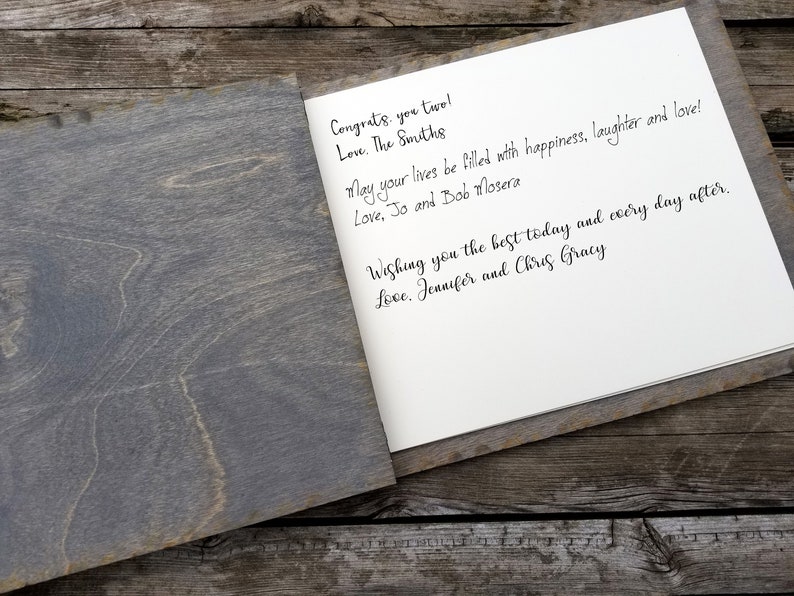 Congrats, you two!
Love, The Smiths
May your lives be filled with happiness, laughter and love!
Love, Jo and Bob Mosera
Wishing you the best today and every day after.
Love, Jennifer and Chris Gracy